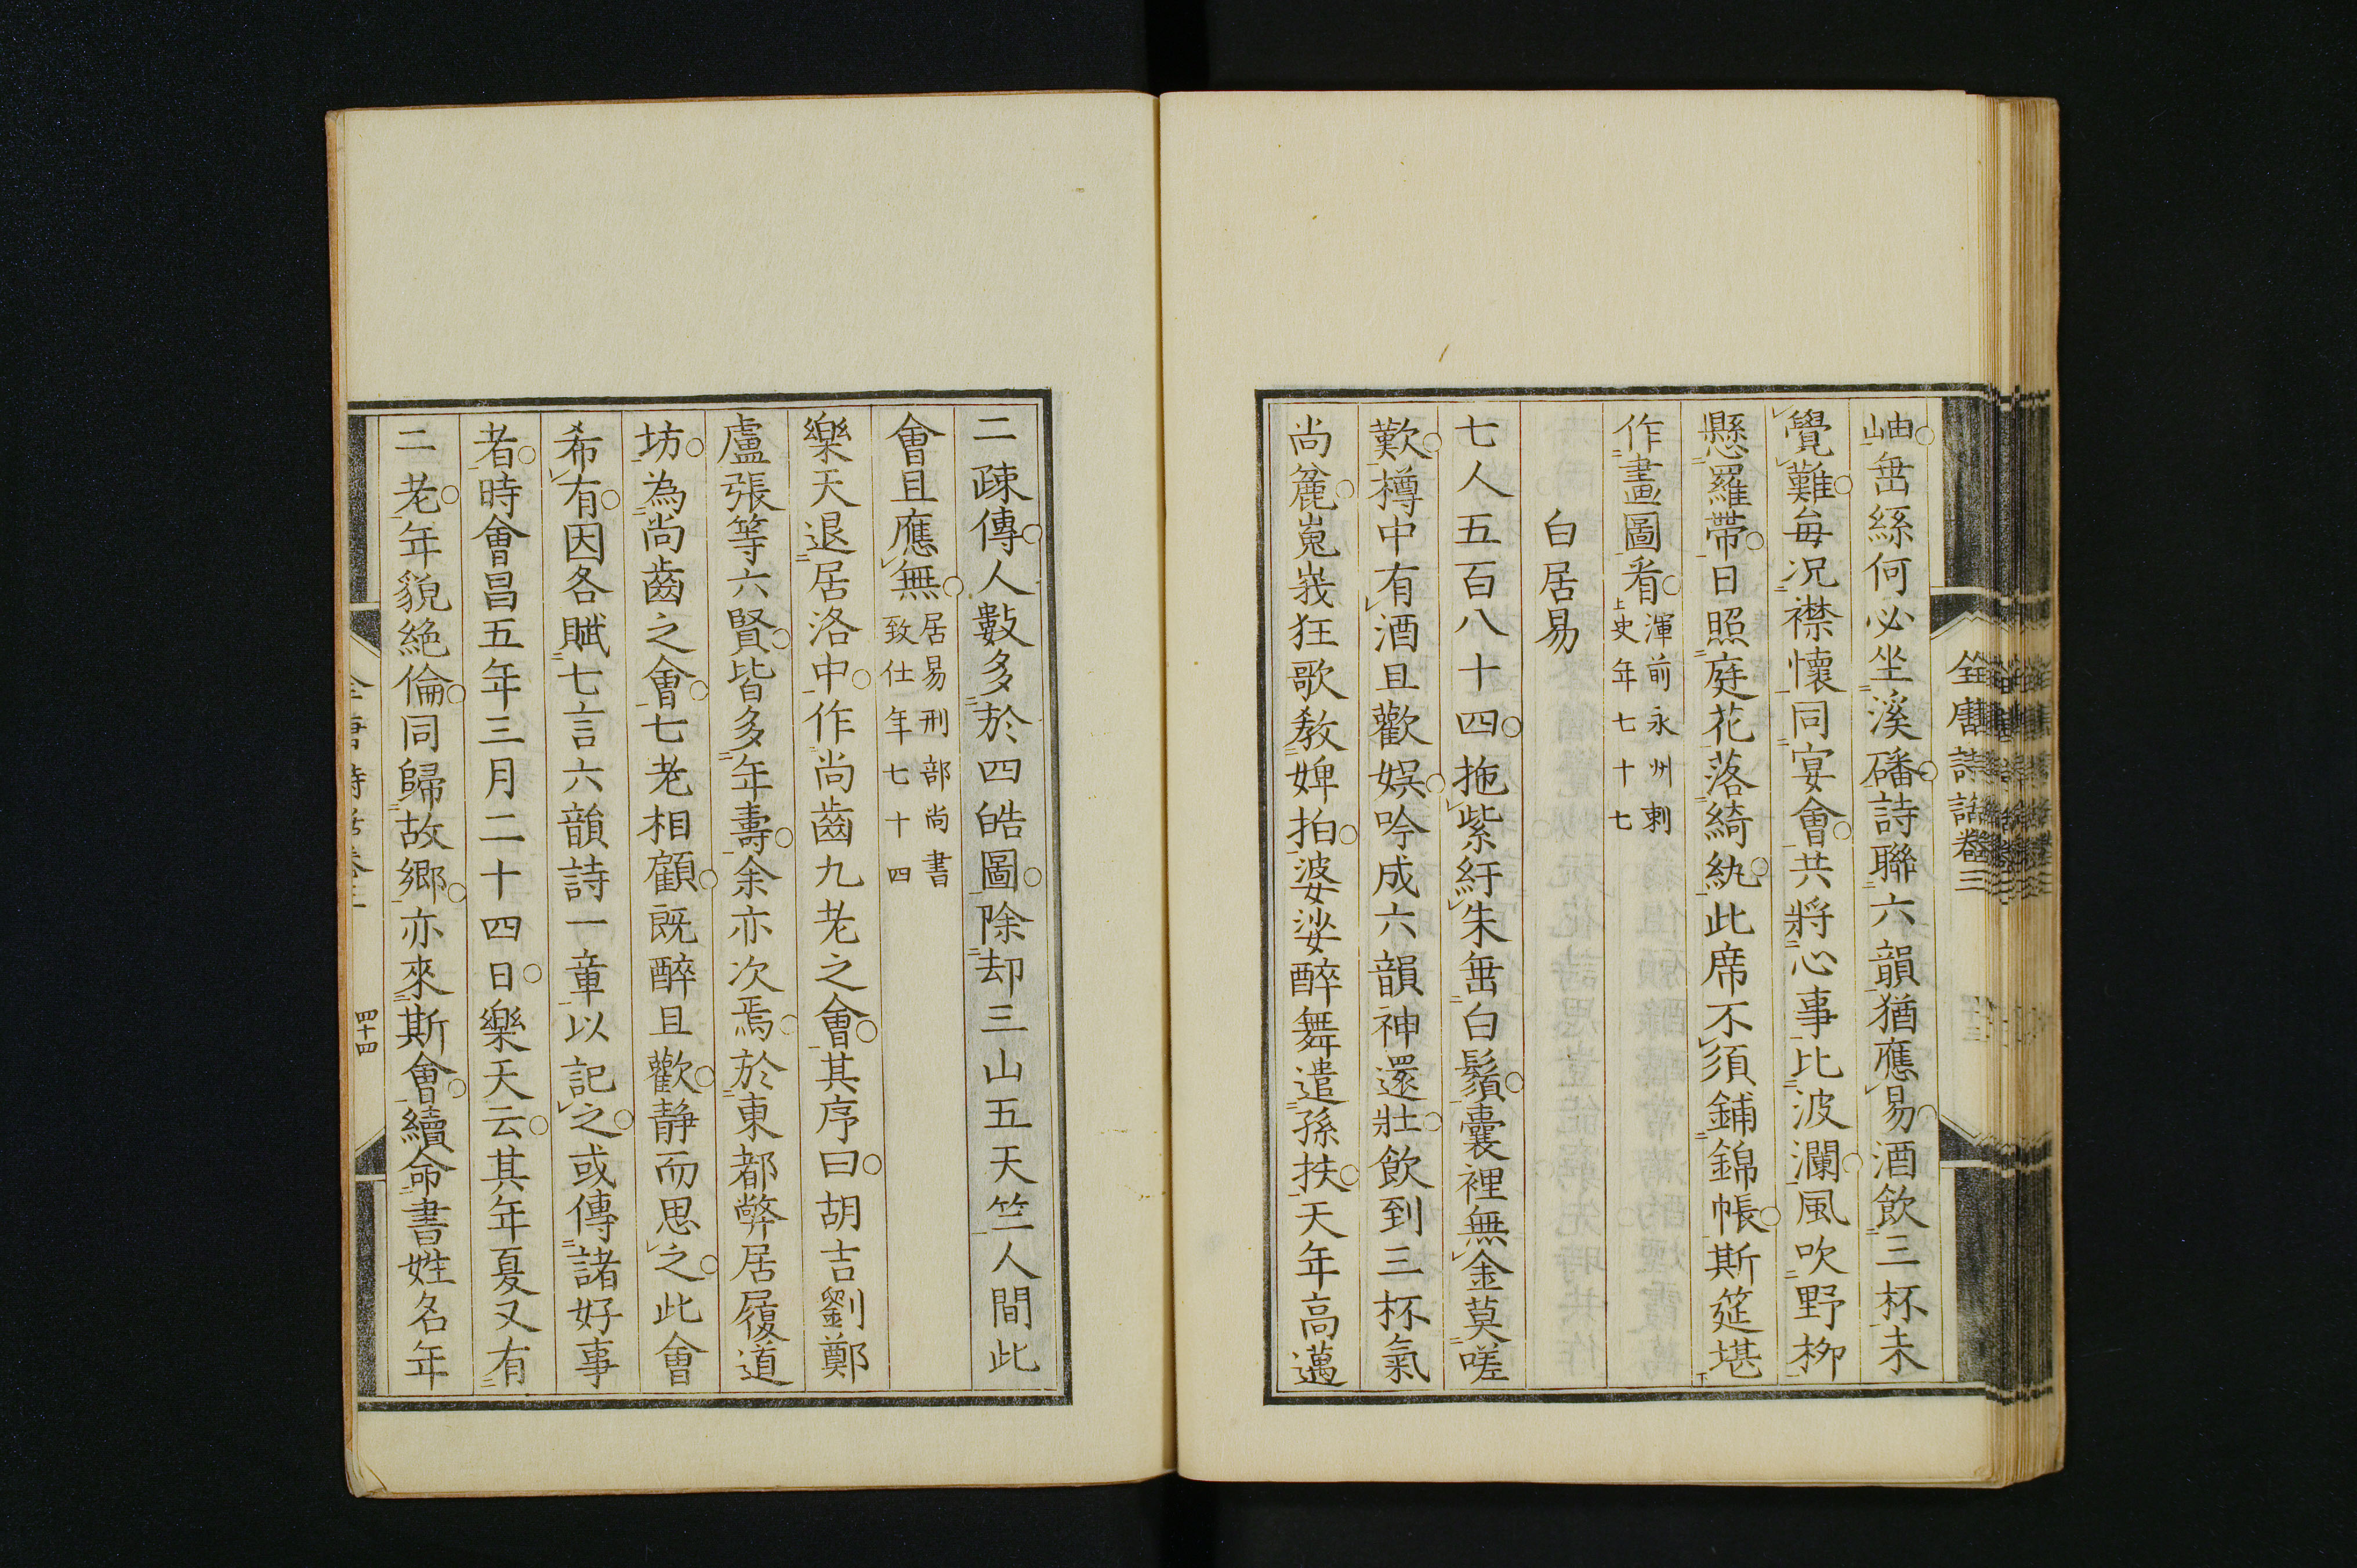 岫垂絲何必坐溪磻詩聯六韻猶應易酒飲三杯未
覺難每況襟懷同宴會共將心事比波瀾風吹野柳
懸羅帶日照庭花落綺紈此席不須鋪錦帳斯筵堪
作畫圖看渾前永州刺
史年七十七
白居易
七人五百八十四拖紫紆朱垂白鬚囊裡無金莫嗟
歎樽中有酒且歡娛吟成六韻神還壯飲到三杯氣
尚麄嵬峩狂歌教婢拍婆娑醉舞遣孫扶天年高邁
全唐詩話卷三
二疎傳人數多於四皓圖除却三山五天竺人間此
會且應無居易刑部尚書
致仕年七十四
樂天退居洛中作尚齒九老之會其序曰胡吉劉鄭
盧張等六賢皆多年壽余亦次焉於東都弊居履道
坊為尚齒之會七老相顧既醉且歡静而思之此會
希有因各賦七言六韻詩一章以記之或傳諸好事
者時會昌五年三月二十四日樂天云其年夏又有
二老年貌絶倫同歸故鄉亦來斯會續命書姓名年
四十四